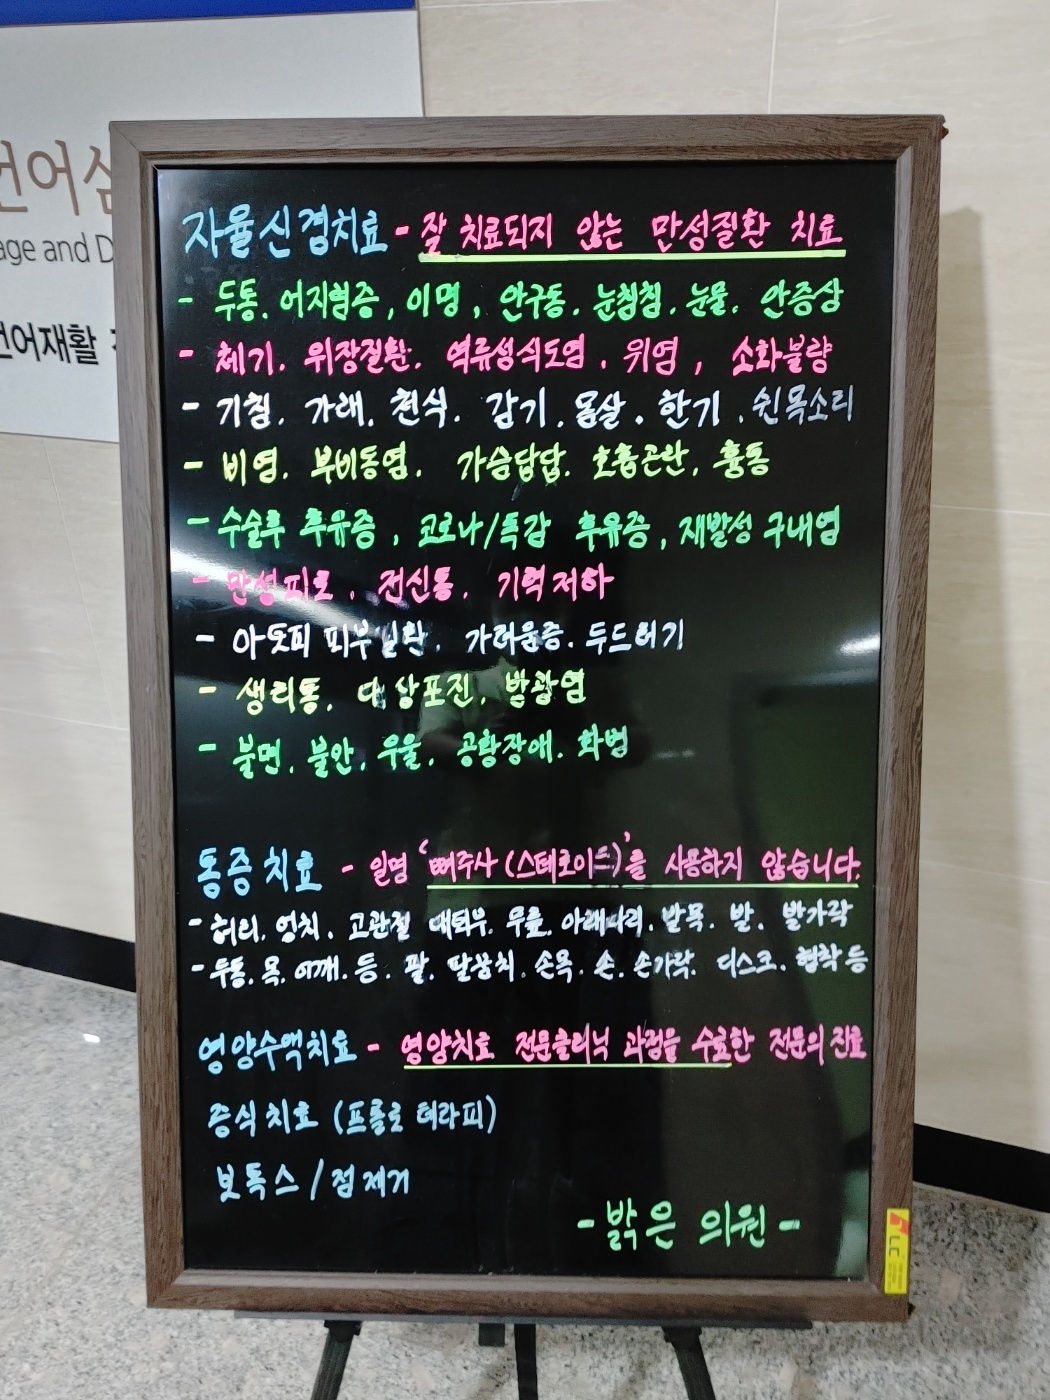 언어심
age and D
언어재활
자율신경치료 - 잘 치료되지 않는 만성질환 치료
- 두통. 어지럼증, 이명, 안구통. 눈침침. 눈물. 안증상
- 체기. 위장질환. 역류성식도염. 위염, 소화불량
- 기침. 가래. 천식. 감기. 몸살. 한기. 쉰목소리
- 비염. 부비동염. 가슴답답. 호흡곤란. 흉통
- 수술후 후유증, 코로나/독감 후유증, 재발성 구내염
- 만성피로. 전신통. 기력저하
- 아토피 피부질환. 가려움증. 두드러기
- 생리통. 대상포진. 방광염
- 불면. 불안. 우울. 공황장애. 화병
통증치료 - 일명 '뼈주사(스테로이드)'를 사용하지 않습니다.
- 허리. 엉치. 고관절 대퇴부. 무릎. 아래다리. 발목. 발. 발가락
- 두통. 목. 어깨. 등. 팔. 팔꿈치. 손목. 손. 손가락. 디스크. 협착 등
영양수액치료 - 영양치료 전문클리닉 과정을 수료한 전문의 진료
증식치료 (프롤로 테라피)
보톡스 / 점제거
- 밝은 의원 -
LC